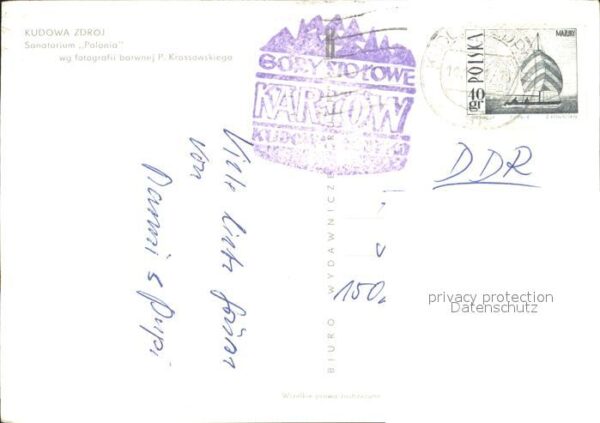 KUDOWA ZDROJ
Sanatorium „Polonia"
wg fotografii barwnej P. Krassowskiego
GÓRY STOŁOWE
KARŁÓW
MAZURY
POLSKA
40 gr
DDR
Viele liebe Grüße
von
Mammi & Puppi
BIURO WYDAWNICZE
150,
privacy protection
Datenschutz
Wszelkie prawa zastrzeżone